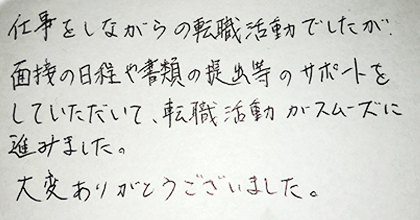 仕事をしながらの転職活動でしたが、
面接の日程や書類の提出等のサポートを
していただいて、転職活動がスムーズに
進みました。
大変ありがとうございました。